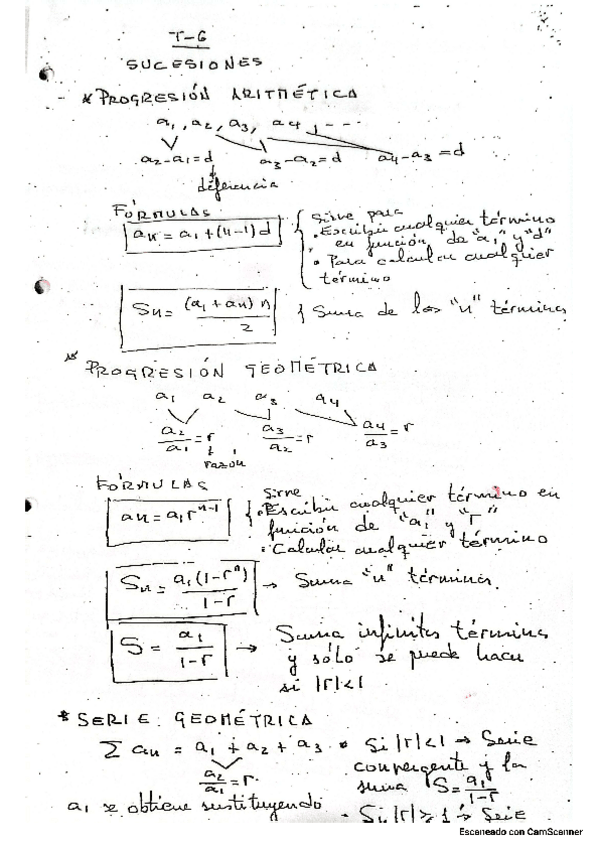 T-6
SUCESIONES
* PROGRESIÓN ARITMÉTICA
a₁, a₂, a₃, a4, ...
a₂-a₁=d a₃-a₂=d a4-a₃=d
diferencia
FÓRMULAS
an = a₁+(n-1)d
Sirve para
• Escribir cualquier término
en función de "a₁" y "d"
• Para calcular cualquier
término
Sn = (a₁+an) n / 2 { Suma de los "n" términos
* PROGRESIÓN GEOMÉTRICA
a₁ a₂ a₃ a4
a₂/a₁=r a₃/a₂=r a4/a₃=r
razón
FÓRMULAS
an = a₁rⁿ⁻¹
Sirve
• Escribir cualquier término en
función de "a₁" y "r"
• Calcular cualquier término
Sn = a₁(1-rⁿ) / 1-r → Suma "n" términos
S = a₁ / 1-r → Suma infinitos términos
y sólo se puede hacer
si |r|<1
* SERIE GEOMÉTRICA
Σ an = a₁ + a₂ + a₃ • Si |r|<1 → Serie
convergente y la
a₂/a₁=r. suma S = a₁/1-r
a₁ se obtiene sustituyendo • Si |r|≥1 → Serie
Escaneado con CamScanner